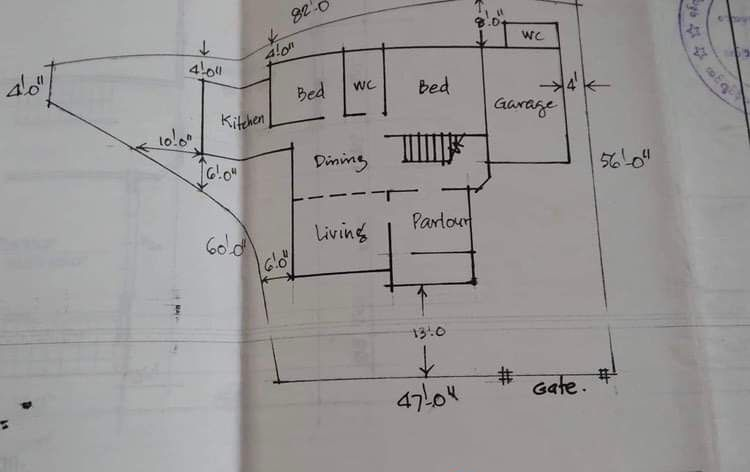 82'.0
8'.0"
WC
4'.0"
4'.0"
4'.0"
Bed
WC
Bed
Garage
4'
Kitchen
10'.0"
Dining
56'.0"
6'.0"
Living
Parlour
60'.0"
6'.0"
13'.0
Gate.
47'.0"